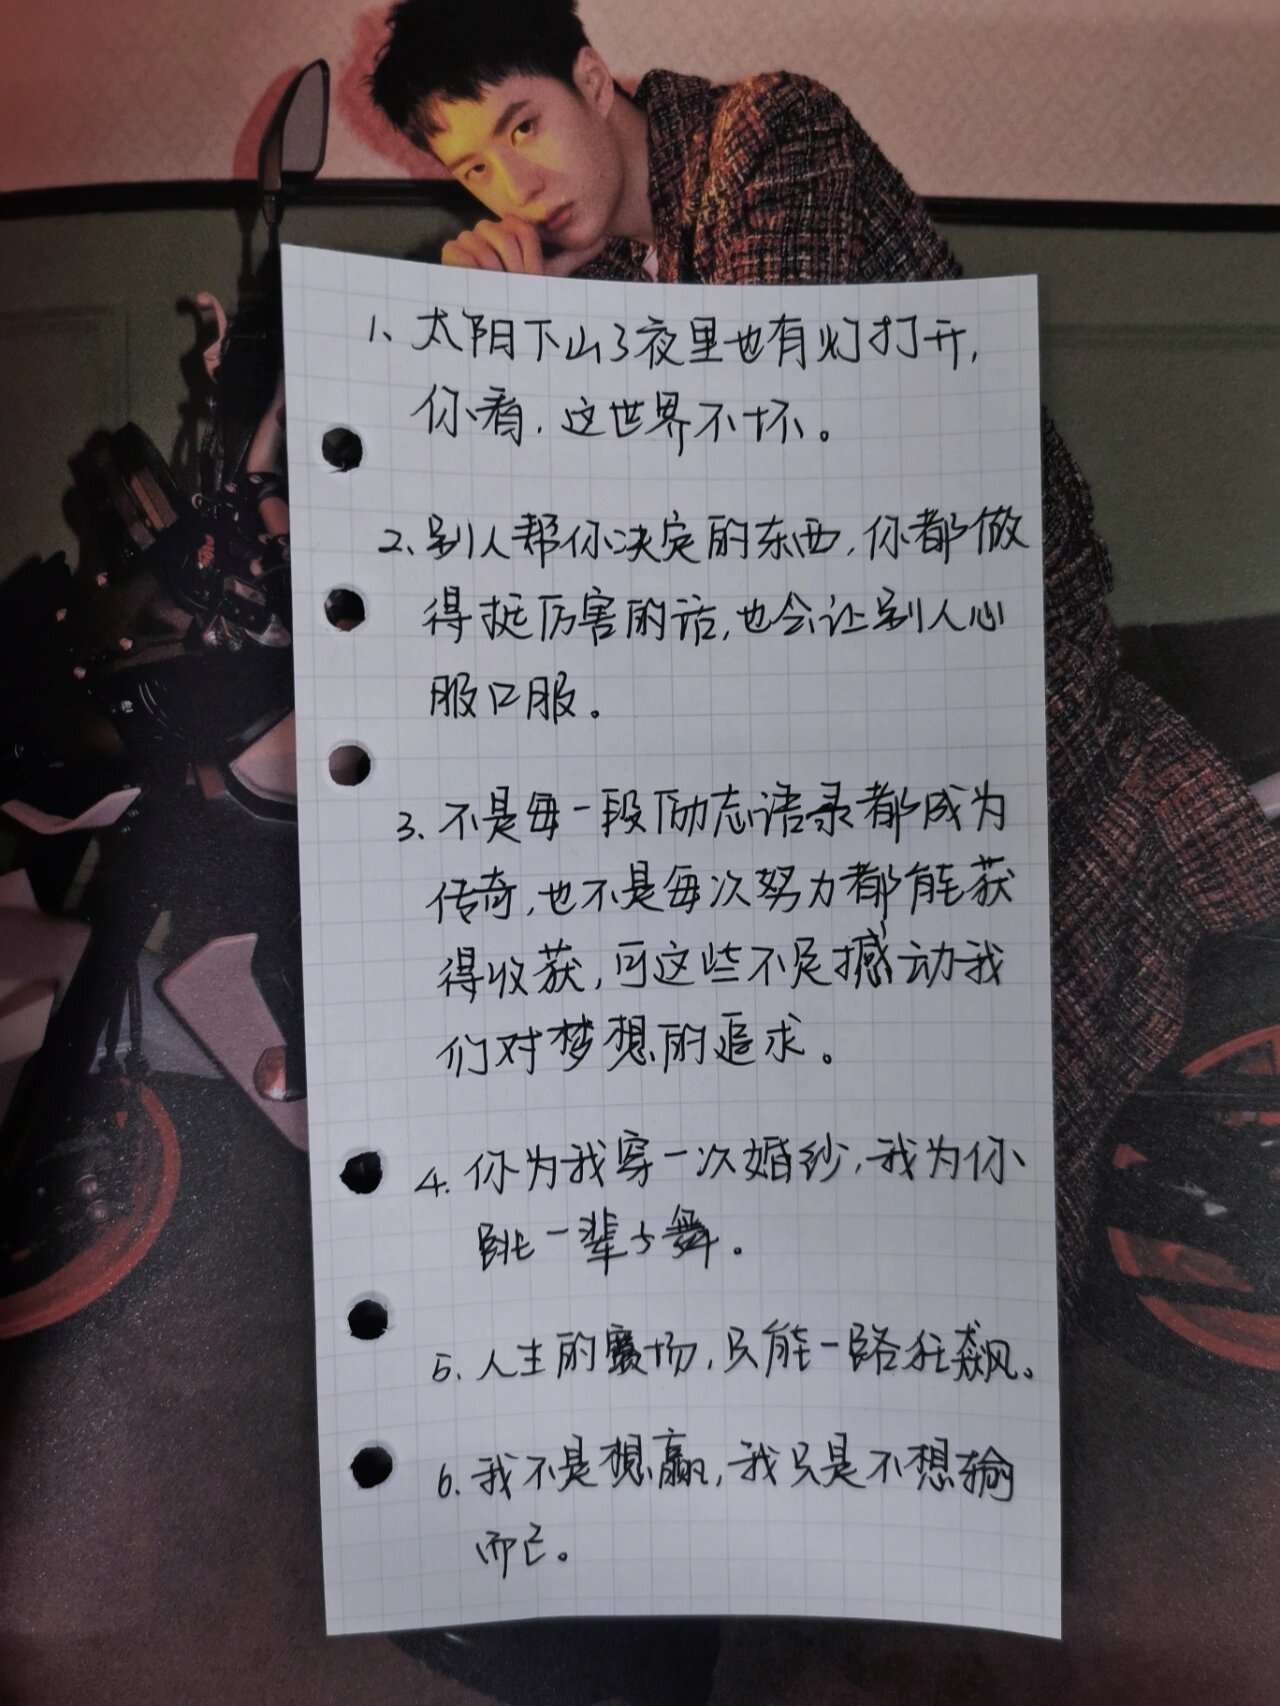 1、太阳下山了夜里也有灯打开,
你看,这世界不坏。
2、别人帮你决定的东西,你都做
得挺厉害的话,也会让别人心
服口服。
3、不是每一段励志语录都成为
传奇,也不是每次努力都能获
得收获,可这些不足撼动我
们对梦想的追求。
4.你为我穿一次婚纱,我为你
跳一辈子舞。
5、人生的赛场,只能一路狂飙。
6、我不是想赢,我只是不想输
而已。